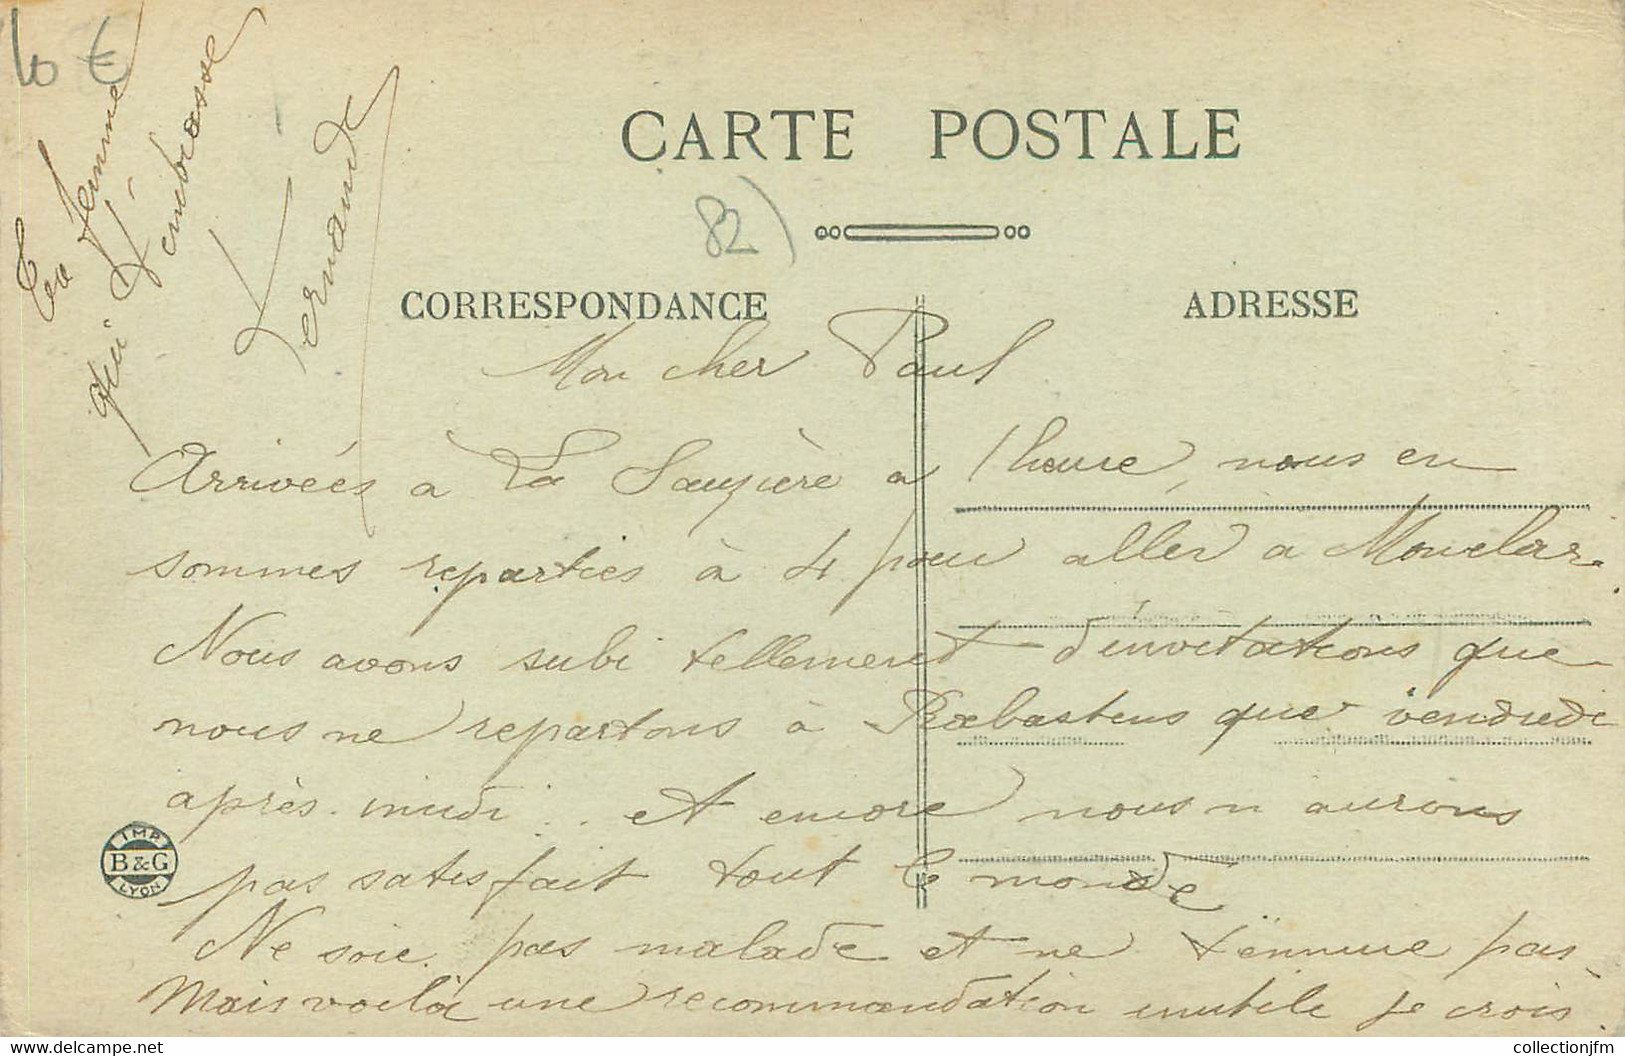 10 €
Ta femme
qui t'embrasse
Fernande
CARTE POSTALE
82)
CORRESPONDANCE
ADRESSE
Mon cher Paul
Arrivées à La Sauzière a 1 heure, nous en
sommes reparties à 4 pour aller a Monclar.
Nous avons subi tellement d'invitations que
nous ne repartons à Rabastens que vendredi
après-midi... et encore nous n aurons
pas satisfait tout le monde
Ne soie pas malade et ne t'ennuie pas.
Mais voilà une recommandation inutile je crois.
IMP.
B & G
LYON
collectionjfm